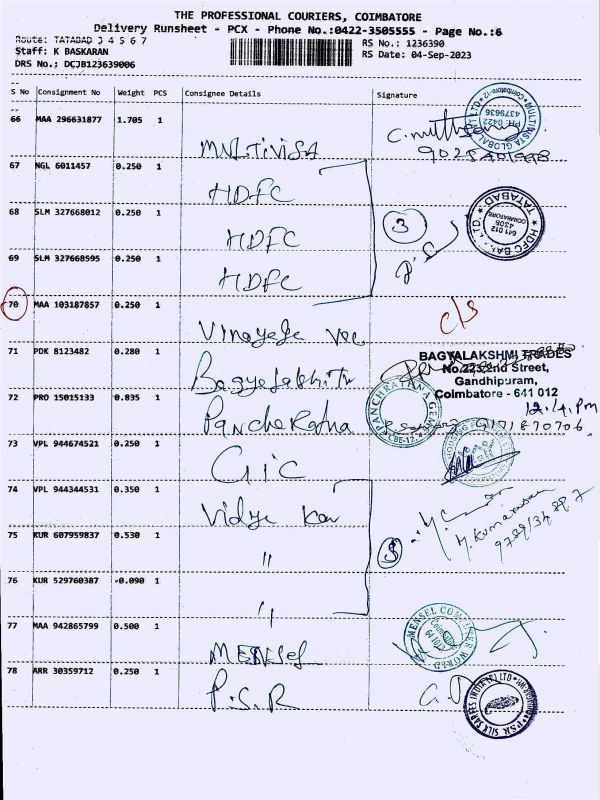 THE PROFESSIONAL COURIERS, COIMBATORE
Delivery Runsheet - PCX - Phone No.:0422-3505555 - Page No.:6
Route: TATABAD 3 4 5 6 7
Staff: K BASKARAN
DRS No.: DCJB123639006
RS No.: 1236390
RS Date: 04-Sep-2023
S No Consignment No Weight PCS Consignee Details Signature
66 MAA 296631877 1.705 1 MULTIVISA
MULTIVISTA GLOBAL
PH: 0422
4379636
Coimbatore-12
67 NGL 6011457 0.250 1 HDFC
68 SLM 327668012 0.250 1 HDFC
3
HDFC BANK LTD.
TATABAD
COIMBATORE
641 012
4306
69 SLM 327668595 0.250 1 HDFC
70 MAA 103187857 0.250 1 Vinayaga
c/s
71 PDK 8123482 0.280 1
BAGYALAKSHMI TRADES
No.223/2nd Street,
Gandhipuram,
Coimbatore - 641 012
72 PRO 15015133 0.835 1 PancheRatna
12.4.Pm
9171870706
PANCHRATHNA
CBE-12
73 VPL 944674521 0.250 1 GIC
74 VPL 944344531 0.350 1 Vidye Kav
75 KUR 607959837 0.530 1 "
3
76 KUR 529760387 -0.090 1 "
77 MAA 942865799 0.500 1 MENSEL
MENSEL COMPUTER WORLD
78 ARR 30359712 0.250 1 P.S.R
PSR SILK SAREES INDIA (P) LTD